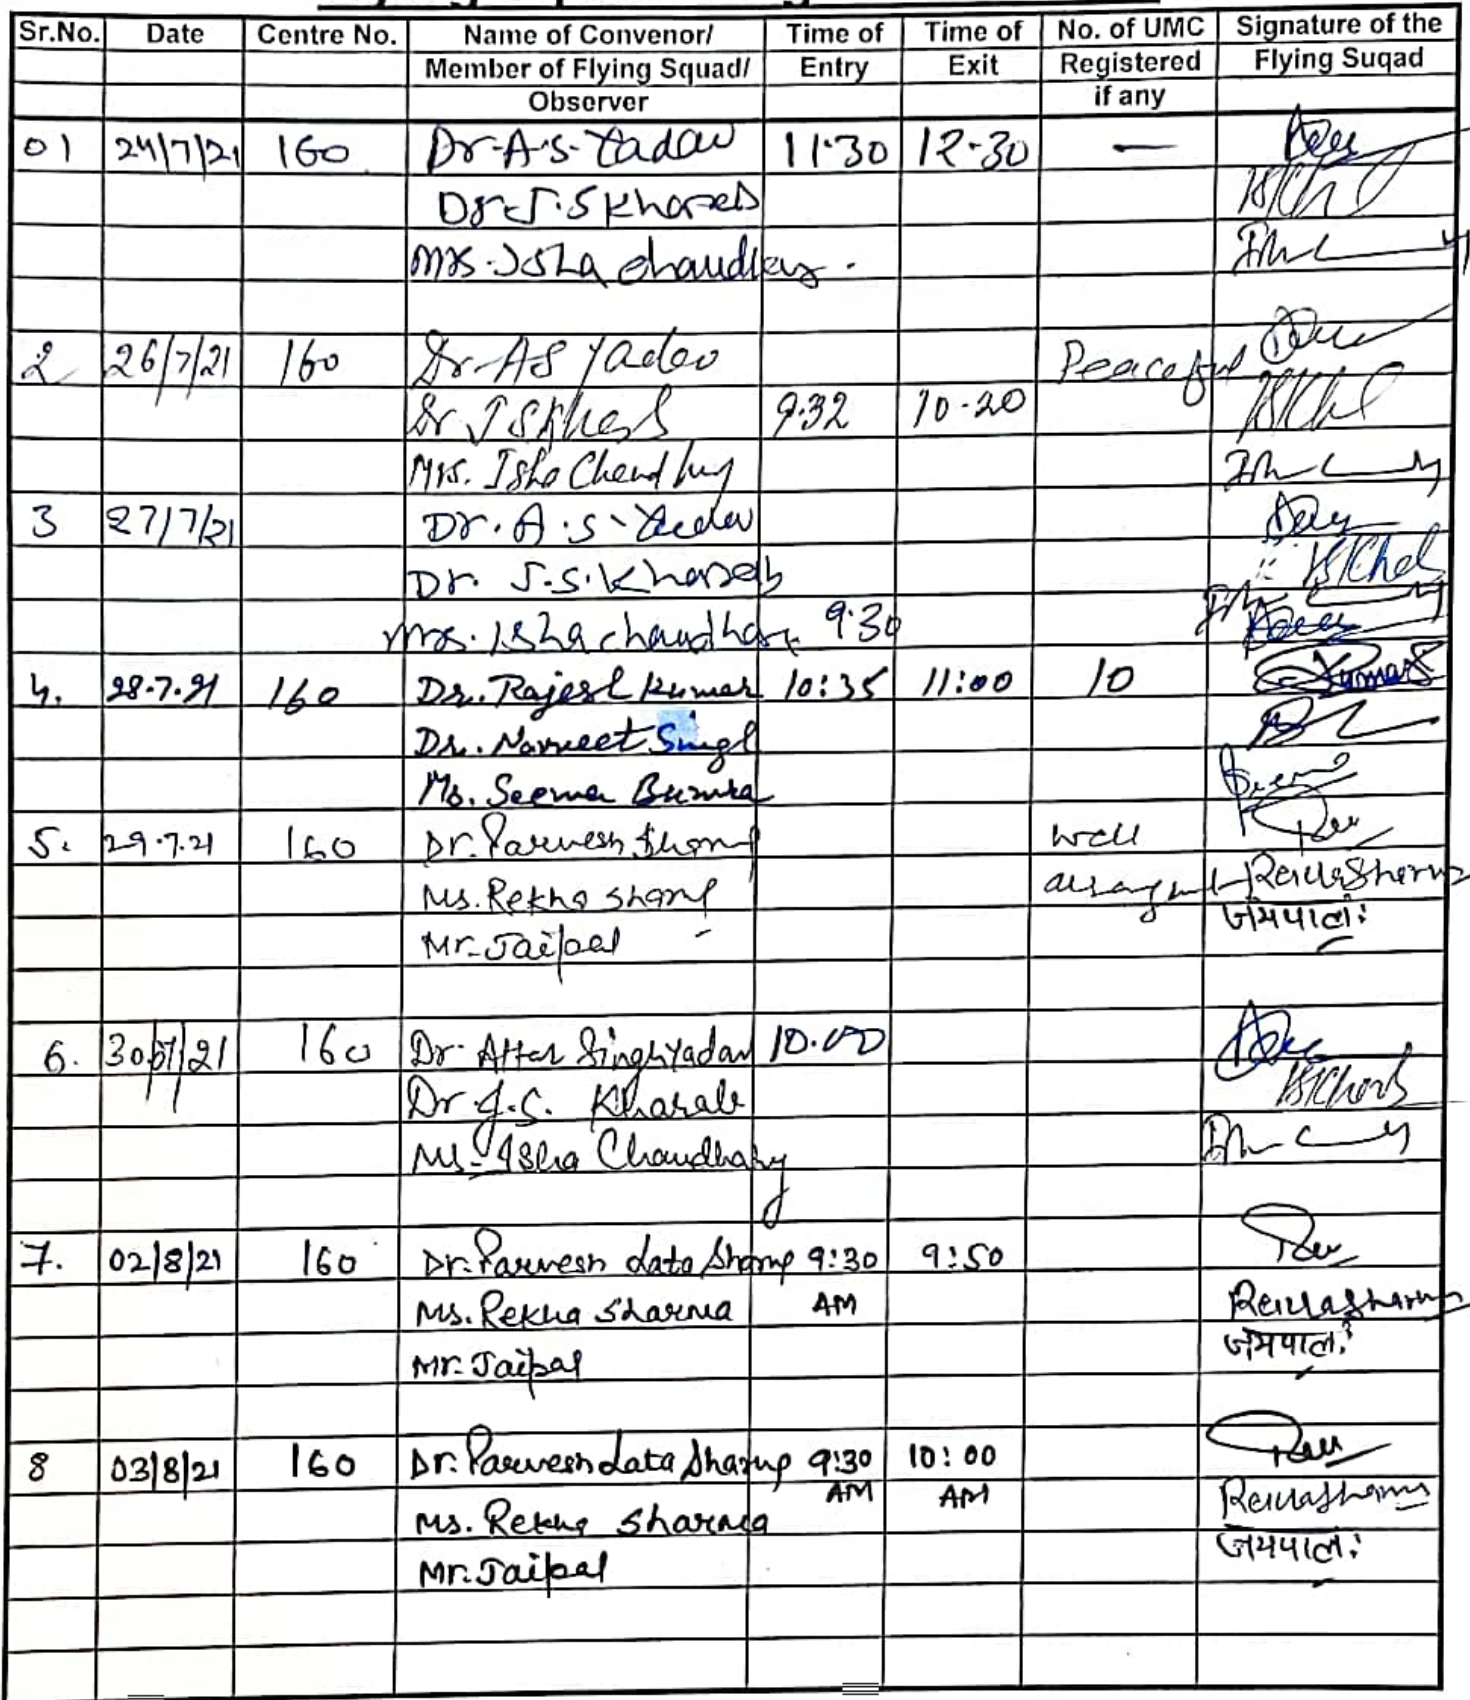 Sr.No. Date Centre No. Name of Convenor/ Time of Time of No. of UMC Signature of the
Member of Flying Squad/ Entry Exit Registered Flying Suqad
Observer if any
01 24/7/21 160 Dr. A.S. Yadav 11.30 12.30 —
Dr. J.S Kharab
Mrs. Isha Chaudhary.
2 26/7/21 160 Dr. AS Yadav Peaceful
Dr J S 9.32 10.20
Mrs. Isha Chaudhry
3 27/7/21 Dr. A.S. Yadav
Dr. J.S. Kharab
Mrs. Isha Chaudhary 9.30
4. 28.7.21 160 Dr. Rajesh Kumar 10:35 11:00 10 Kumar
Dr. Navneet Singh
Ms. Seema
5. 29.7.21 160 Dr. Parvesh Sharma well
Ms. Rekha Sharma Rekha Sharma
Mr. Jaipal जयपाल
6. 30/07/21 160 Dr. Attar Singh Yadav 10.00
Dr. J.S. Kharab
Ms. Isha Chaudhary
7. 02/8/21 160 Dr. Parvesh Lata Sharma 9:30 9:50
Ms. Rekha Sharma AM Rekha Sharma
Mr. Jaipal जयपाल
8 03/8/21 160 Dr. Parvesh Lata Sharma 9:30 10:00
AM AM
Ms. Rekha Sharma Rekha Sharma
Mr. Jaipal जयपाल